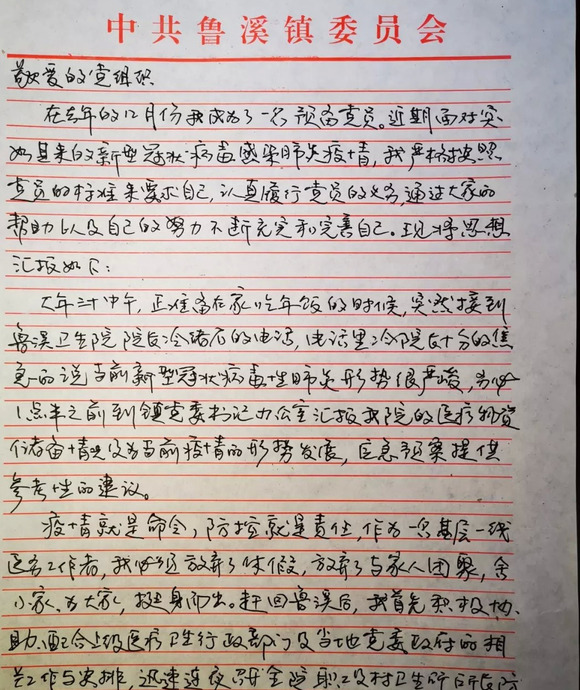 中共鲁溪镇委员会
敬爱的党组织
在去年的12月份我成为了一名预备党员。近期面对突
如其来的新型冠状病毒感染肺炎疫情，我严格按照
党员的标准来要求自己，认真履行党员的义务，通过大家的
帮助以及自己的努力不断充实和完善自己。现将思想
汇报如下：
大年三十中午，正准备在家吃年饭的时候，突然接到
鲁溪卫生院院长冷绪后的电话，电话里冷院长十分的焦
急的说当前新型冠状病毒性肺炎形势很严峻，务必
1点半之前到镇党委书记办公室汇报我院的医疗物资
储备情况及为当前疫情的形势发展，应急预案提供
参考性的建议。
疫情就是命令，防控就是责任，作为一名基层一线
医务工作者，我必须放弃了休假，放弃了与家人团聚，舍
小家、为大家，挺身而出。赶回鲁溪后，我首先积极地
助、配合上级医疗卫生行政部门及当地党委政府的相
关工作与安排，迅速连夜召开全院职工及村卫生所所长防